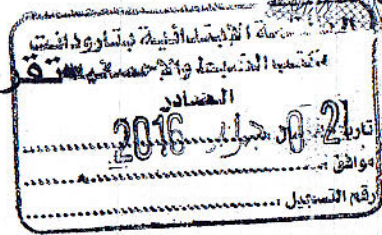 المحكمة الابتدائية بتارودانت
مكتب الضبط والاحصاء
الصادر
تاريخ 02 فبراير 2016
موافق
رقم التسجيل